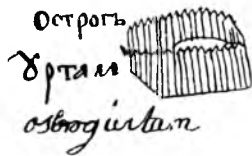 Острогъ
Ꙋртам
ostrog urtam